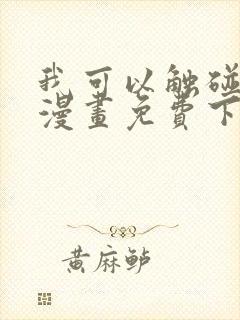 我可以触碰
漫畫免費下
黄麻鲈